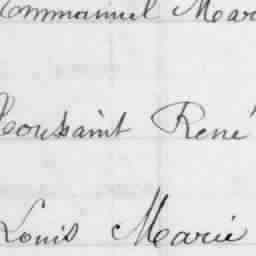 Emmanuel Mar
Toussaint René
Louis Marie